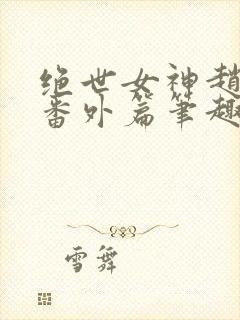 绝世女神赵
番外篇笔趣
雪舞